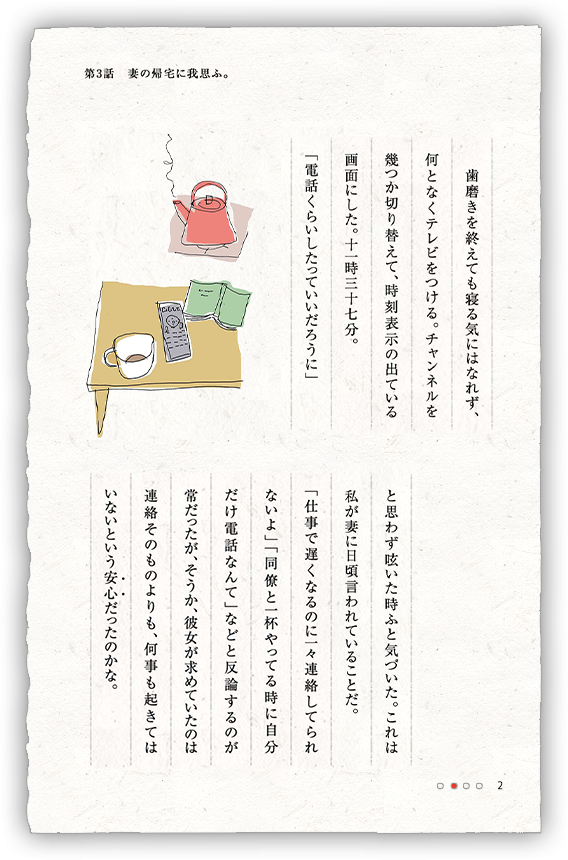 第3話　妻の帰宅に我思ふ。
　歯磨きを終えても寝る気にはなれず、
何となくテレビをつける。チャンネルを
幾つか切り替えて、時刻表示の出ている
画面にした。十一時三十七分。
「電話くらいしたっていいだろうに」
と思わず呟いた時ふと気づいた。これは
私が妻に日頃言われていることだ。
「仕事で遅くなるのに一々連絡してられ
ないよ」「同僚と一杯やってる時に自分
だけ電話なんて」などと反論するのが
常だったが、そうか、彼女が求めていたのは
連絡そのものよりも、何事も起きては
いないという安心だったのかな。
2